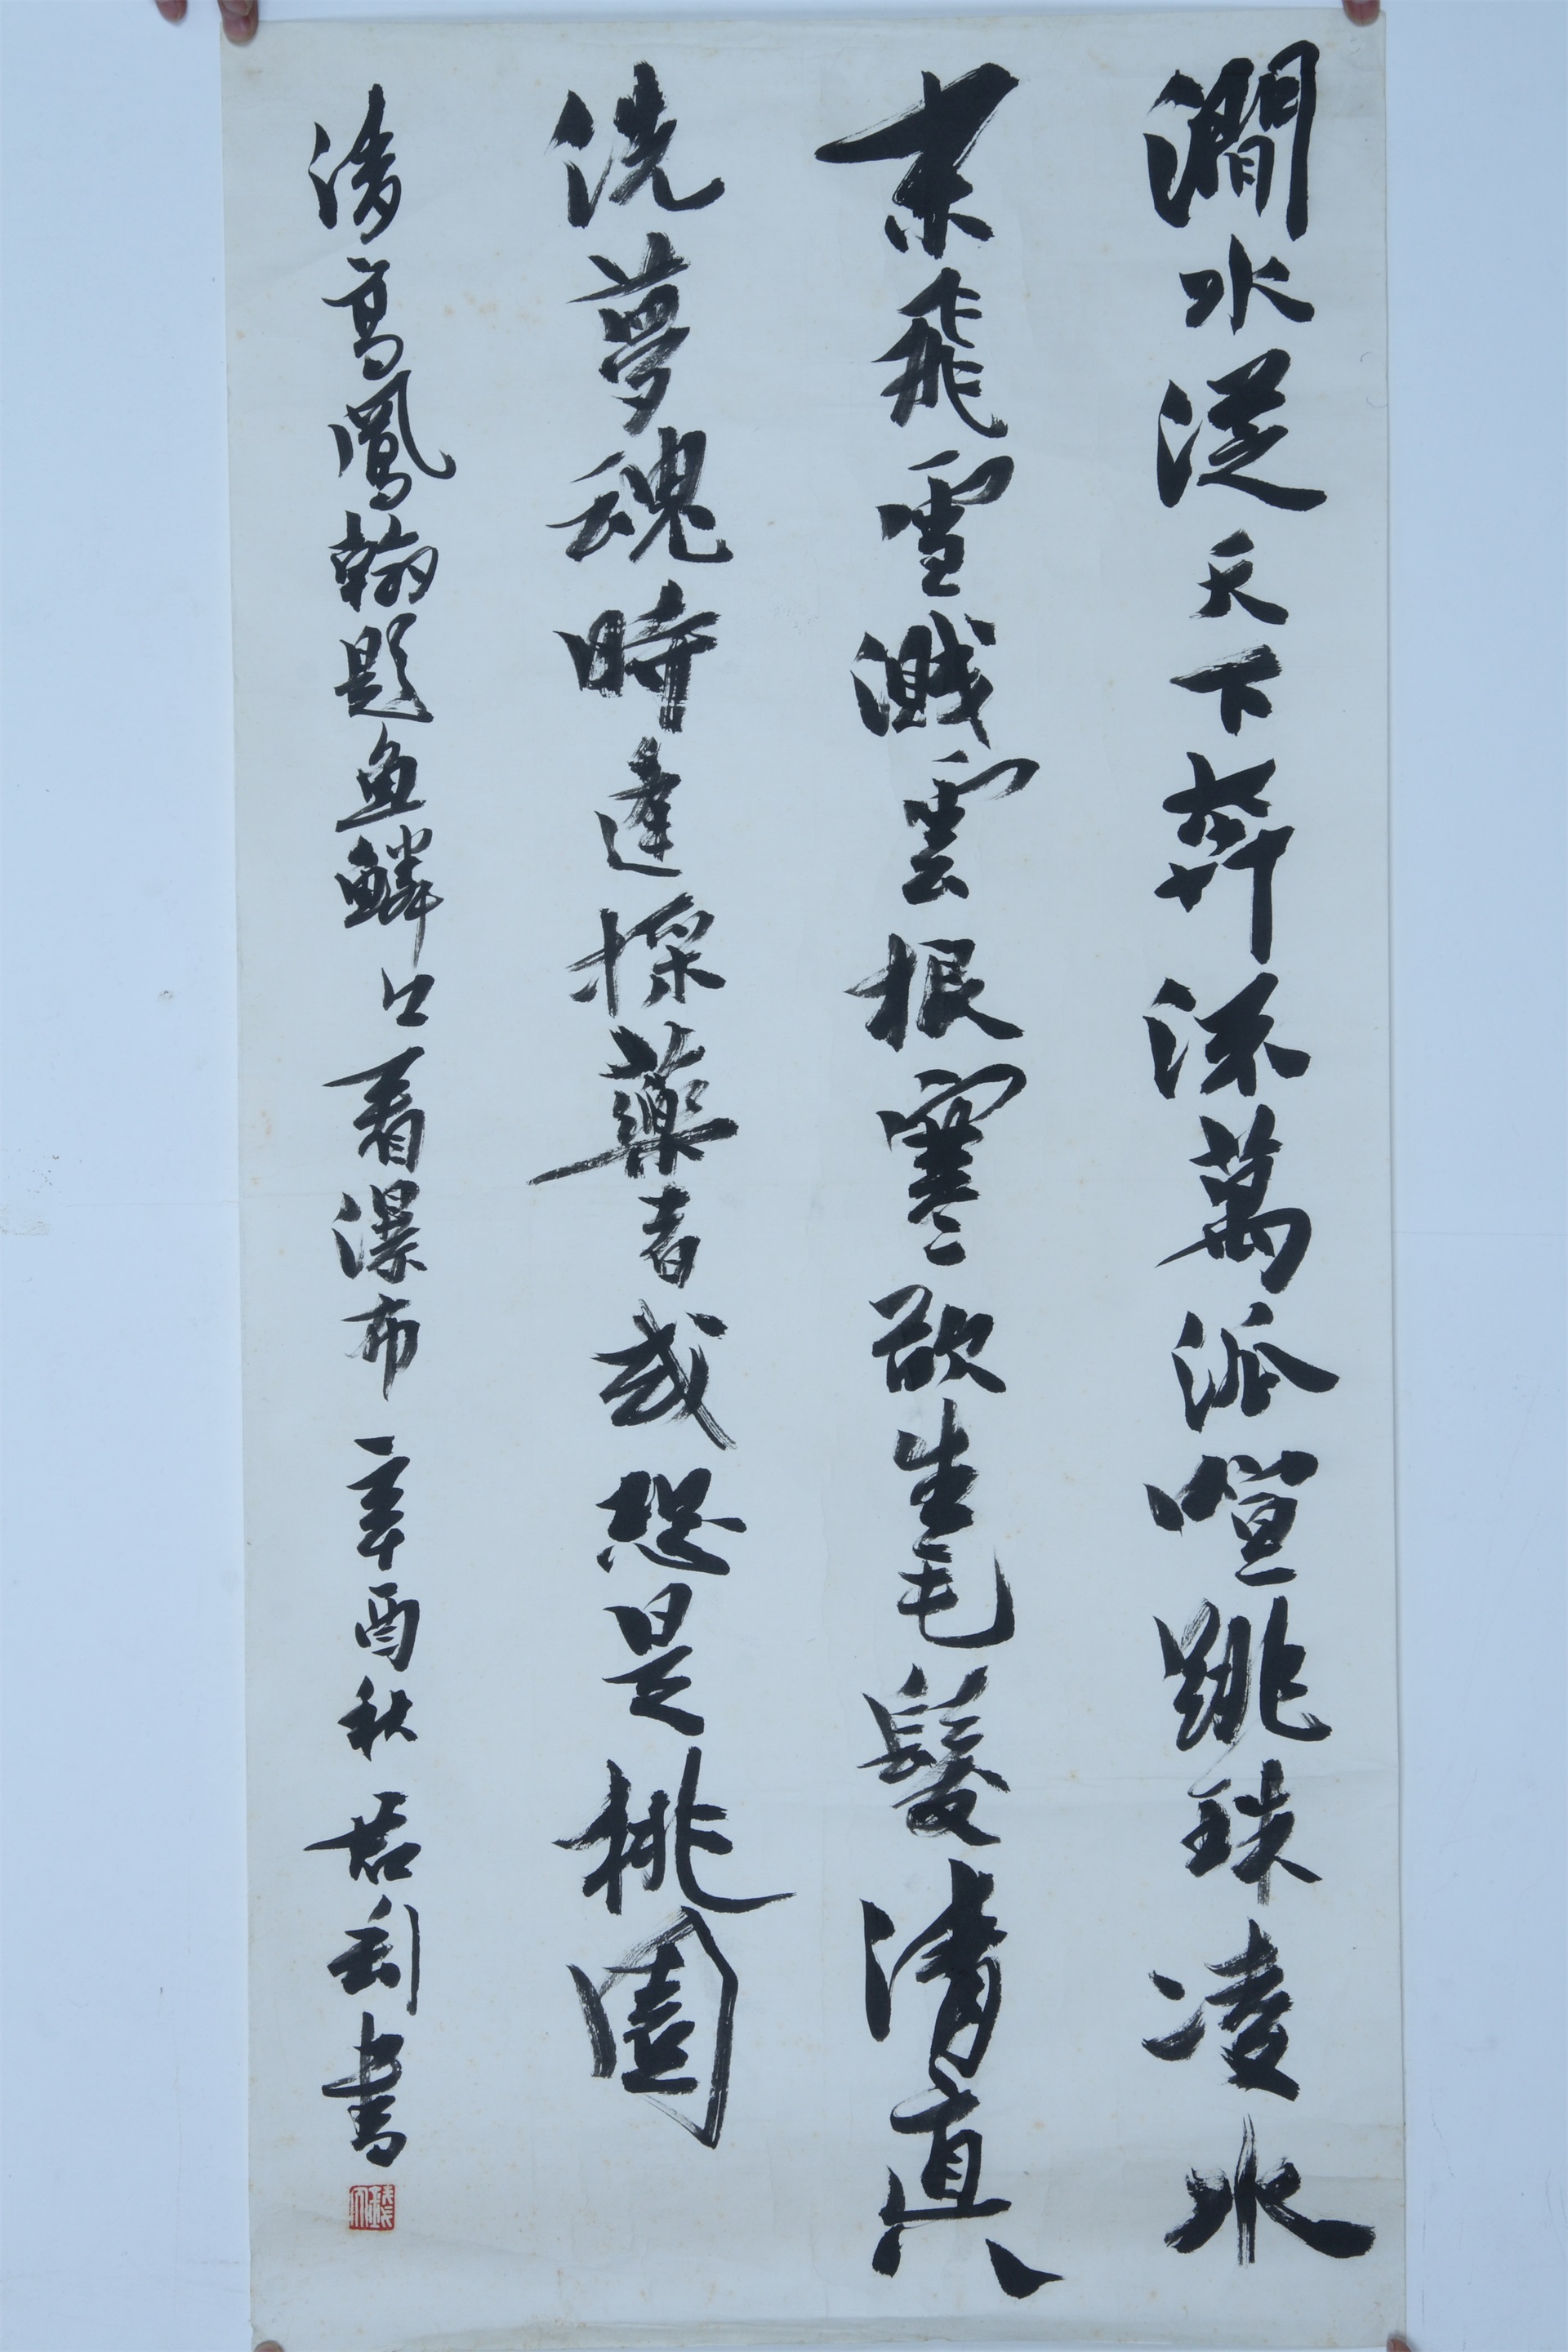 澗水從天下奔流萬派喧跳珠凌水
末飛雪濺雲根寒欲生毛髮清真
洗夢魂時逢採藥者或恐是桃園
清高鳳翰題魚鱗口看瀑布 辛酉秋 君利書